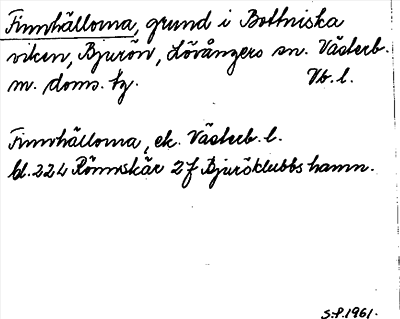 Finnhällorna, grund i Bottniska
viken, Bjurön, Lövångers sn. Västerb.
m. doms. tg. Vb. l.
Finnhällorna, ek. Västerb. l.
bl. 224 Rönnskär 2 f Bjuröklubbs hamn.
S.P. 1961.